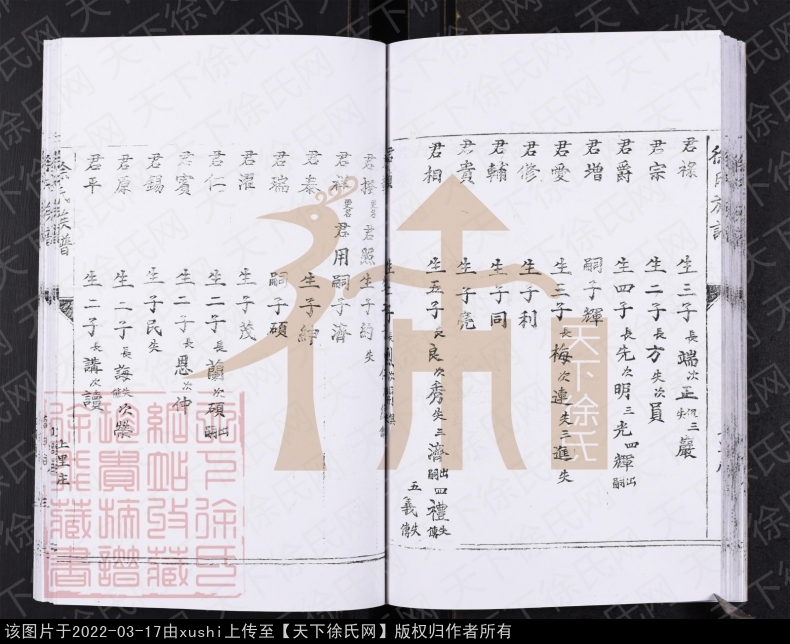 徐氏族譜
君祿 生三子長端次正三巖
君宗 生二子長方失次員
君爵 生四子長先次明三光四輝出嗣
君增 嗣子輝
君愛 生三子長梅失次連失三進失
君修 生子利
君輔 生子同
君貴 生子亮
君相 生五子長良次秀失三濟出嗣四禮失傳五義失傳
君照 生子約失
君用 嗣子濟
君泰 生子紳
君瑞 嗣子碩
君濯 生子茂
君仁 生二子長蘭次碩出嗣
君賓 生二子長恩次仲
君錫 生子民失
君原 生二子長誨失傳次榮
君平 生二子長講次讀
徐氏族譜
上里庄
天下徐氏
天下徐氏网
该图片于2022-03-17由xushi上传至【天下徐氏网】版权归作者所有